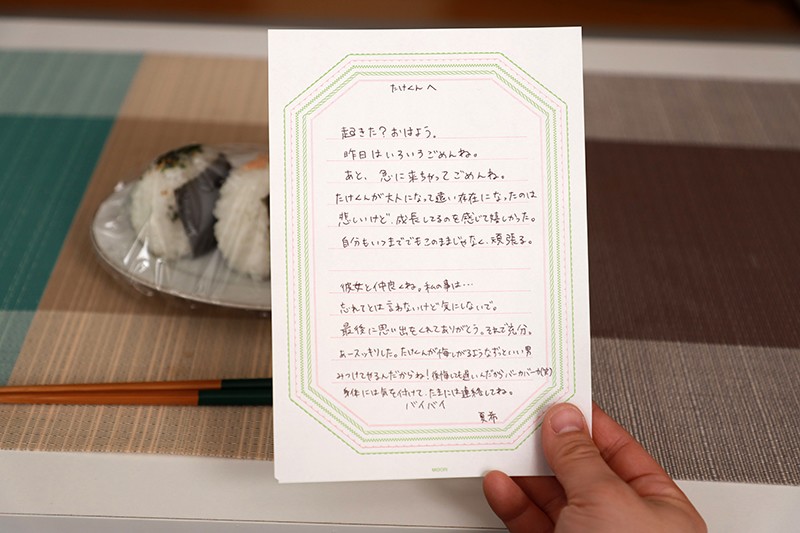 たけくんへ
起きた？おはよう。
昨日はいろいろごめんね。
あと、急に来ちゃってごめんね。
たけくんが大人になって遠い存在になったのは
悲しいけど、成長してるのを感じて嬉しかった。
自分もいつまでもこのままじゃなく、頑張る。
彼女と仲良くね。私の事は…
忘れてとは言わないけど気にしないで。
最後に思い出をくれてありがとう。それで充分。
あースッキリした。たけくんが悔しがるようなずっといい男
みつけてやるんだからね！後悔しても遅いんだからバーカバーカ(笑)
身体には気を付けて、たまには連絡してね。
バイバイ
夏希